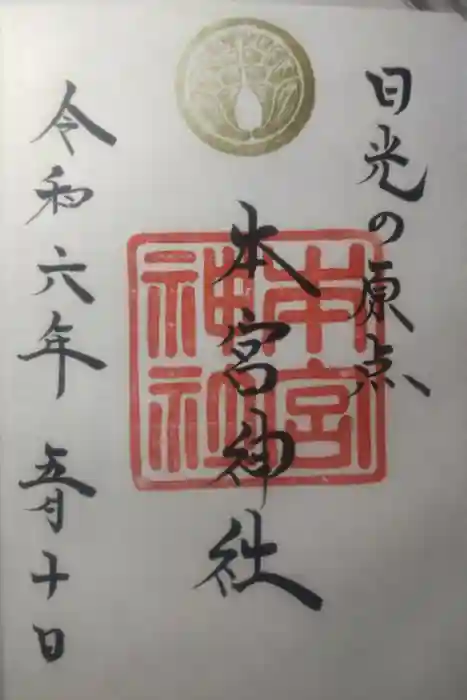 日光の原点
本宮神社
本宮
神社
令和六年五月十日